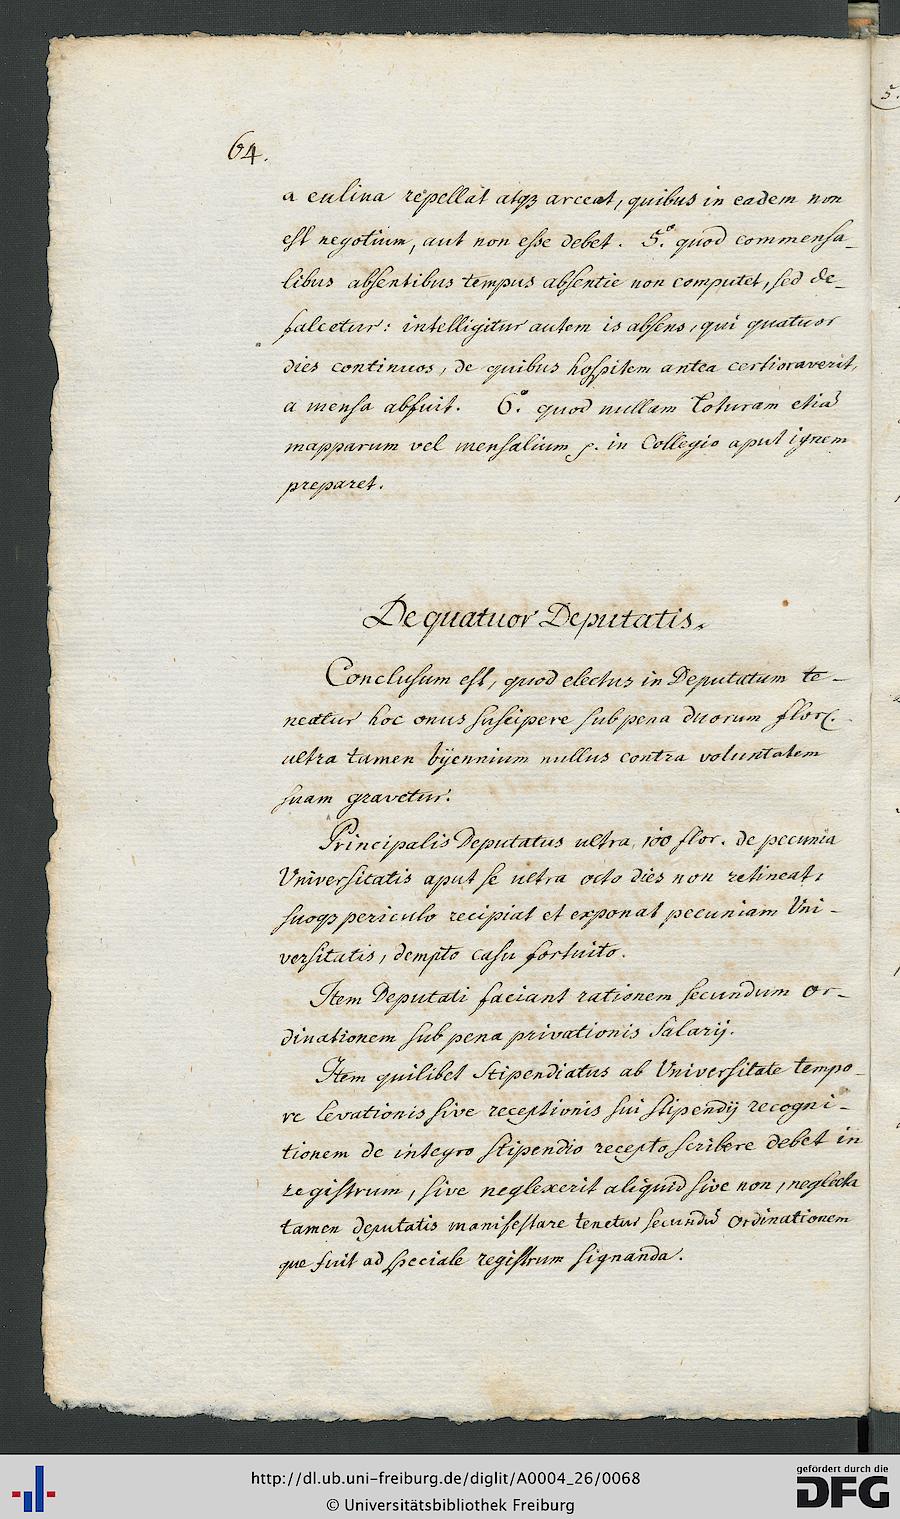 64.
a culina repellat atqz arceat, quibus in eadem non
est negotium, aut non esse debet. 5.° quod commensa-
libus absentibus tempus absentie non computet, sed de-
falcetur: intelligitur autem is absens, qui quatuor
dies continuos, de quibus hospitem antea certioraverit,
a mensa abfuit. 6.° quod nullam loturam etiã
mapparum vel mensalium in Collegio aput ignem
preparet.
De quatuor Deputatis.
Conclusum est, quod electus in Deputatum te-
neatur hoc onus suscipere sub pena duorum flor.
ultra tamen byennium nullus contra voluntatem
suam gravetur.
Principalis Deputatus ultra 100 flor. de pecunia
Universitatis aput se ultra octo dies non retineat,
suoqz periculo recipiat et exponat pecuniam Uni-
versitatis, dempto casu fortuito.
Item Deputati faciant rationem secundum or-
dinationem sub pena privationis Salarij.
Item quilibet Stipendiatus ab Universitate tempo-
re levationis sive receptionis sui stipendij recogni-
tionem de integro stipendio recepto scribere debet in
registrum, sive neglexerit aliquid sive non, neglecta
tamen deputatis manifestare tenetur secundũ ordinationem
que fuit ad speciale registrum signanda.
5.
http://dl.ub.uni-freiburg.de/diglit/A0004_26/0068
© Universitätsbibliothek Freiburg
gefördert durch die
DFG